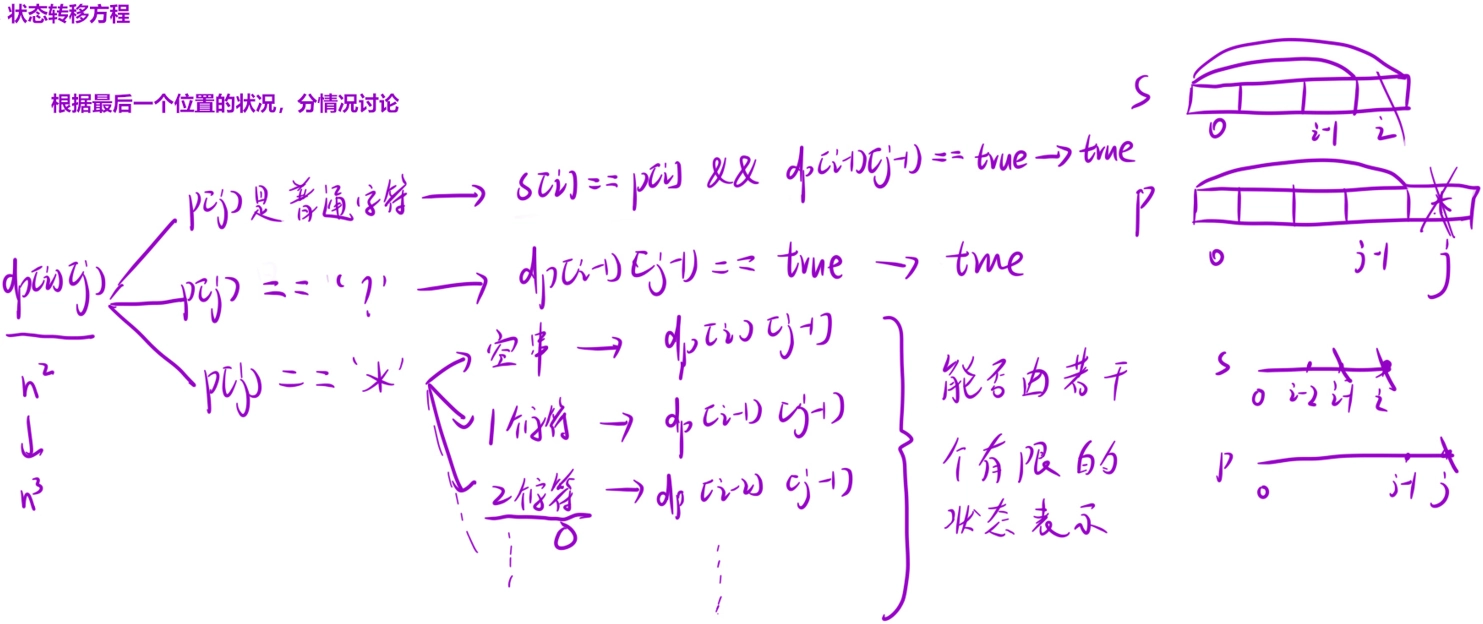 状态转移方程
根据最后一个位置的状况，分情况讨论
p[j]是普通字符 → s[i] == p[j] && dp[i-1][j-1] == true → true
dp[i][j]
p[j] == '?' → dp[i-1][j-1] == true → true
p[j] == '*'
空串 → dp[i][j-1]
1个字符 → dp[i-1][j-1]
2个字符 → dp[i-2][j-1]
0
能否由若干
个有限的
状态表示
n²
↓
n³
s
0 i-1 i
p
*
0 j-1 j
s
0 i-2 i-1 i
p
0 j-1 j